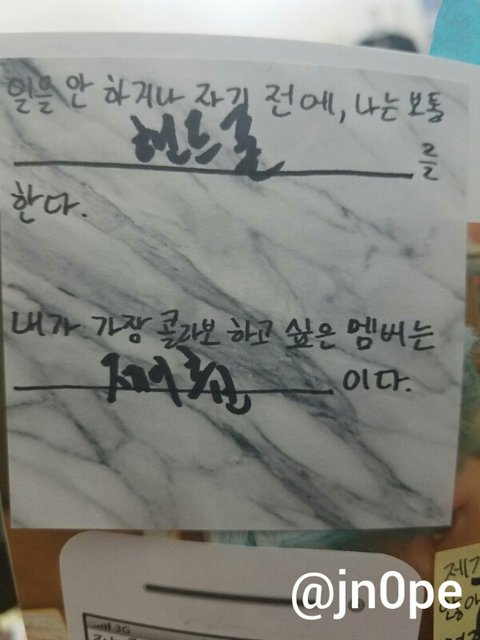 일을 안 하거나 자기 전에, 나는 보통
핸드폰 를
한다.
내가 가장 콜라보 하고 싶은 멤버는
이다.
3G
@jn0pe